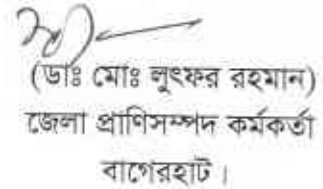 (ডাঃ মোঃ লুৎফর রহমান)
জেলা প্রাণিসম্পদ কর্মকর্তা
বাগেরহাট।